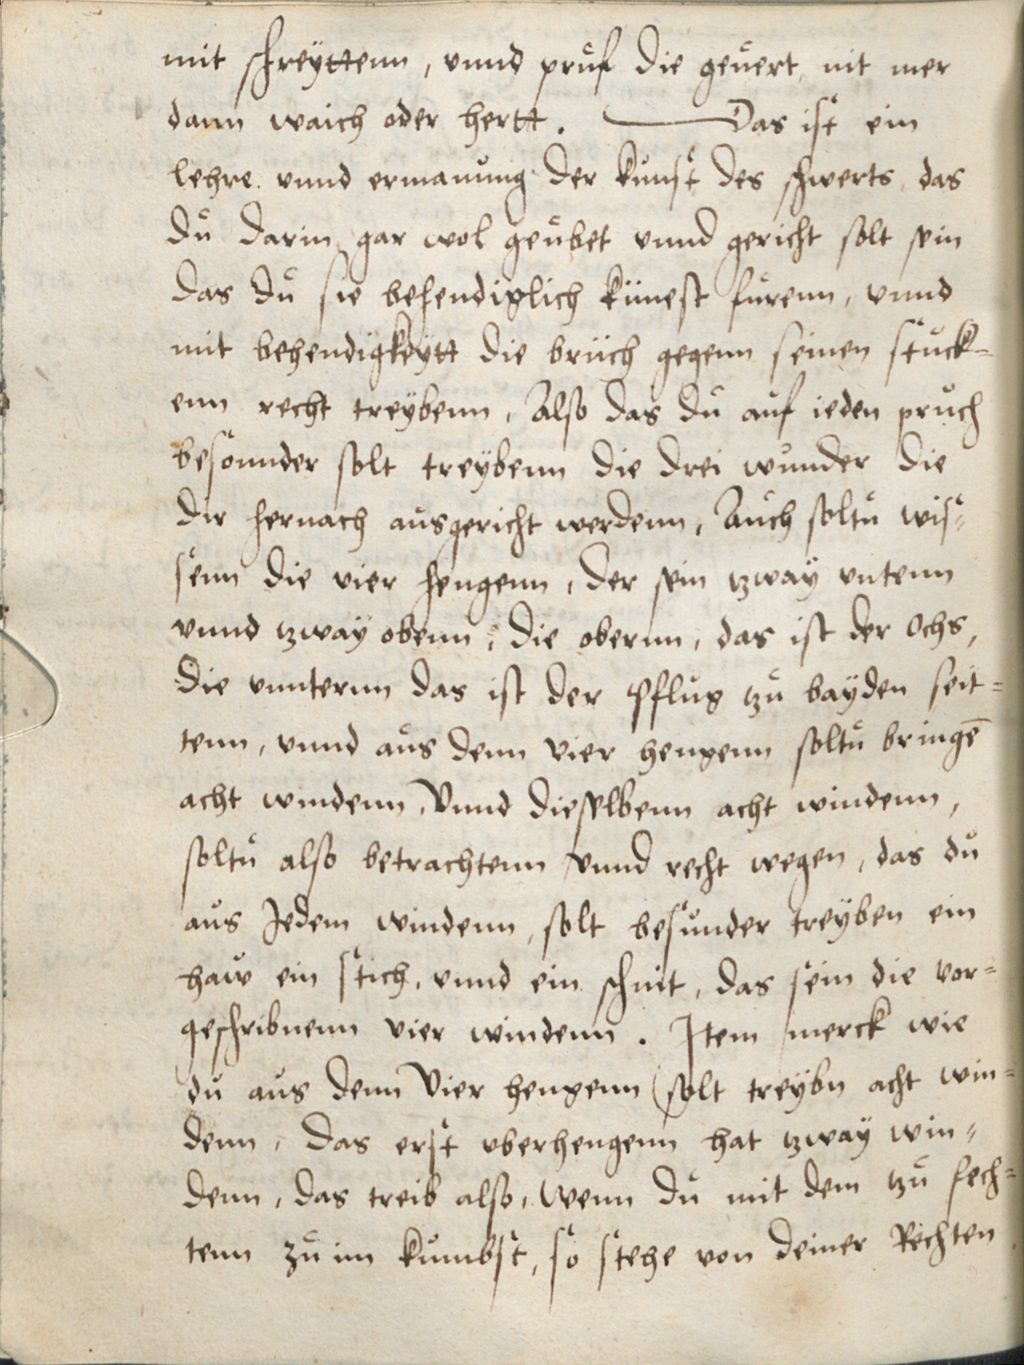 mit schreyttenn, vnnd pruf die geuert nit mer
dann waich oder hertt. Das ist ein
lehre vnnd ermanung der kunst des schwerts das
du darin gar wol geubet vnnd gericht solt sein
das du sie behendiglich künest furenn, vnnd
mit behendigkeytt die brüch gegenn seinen stuck=
enn recht treybenn, Also das du auf ieden pruch
besonnder solt treybenn die drei wunder die
dir hernach ausgericht werdenn, Auch soltu wis=
senn die vier hengenn, der sein tzway vntenn
vnnd tzway obenn, die obernn, das ist der Ochs,
die vnnternn das ist der Pflug tzu bayden seit=
tenn, vnnd aus denn vier hengenn soltu bringē
acht windenn, Vnnd dieselbenn acht windenn,
soltu also betrachtenn vnnd recht wegen, das du
aus Jedem windenn, solt besunder treyben ein
haw ein stich, vnnd ein schnit, das sein die vor=
geschribnenn vier windenn. Item merck wie
du aus denn Vier hengenn solt treybn acht win=
denn, Das erst vberhengenn hat tzway win=
denn, das treib also, Wenn du mit dem tzu fech=
tenn zu im kumbst, so stehe von deiner Rechten